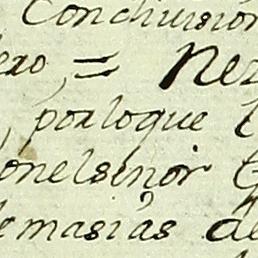 Conclusion
ero, = Nez
, porloque l
onelsenõr G
demasiâs de